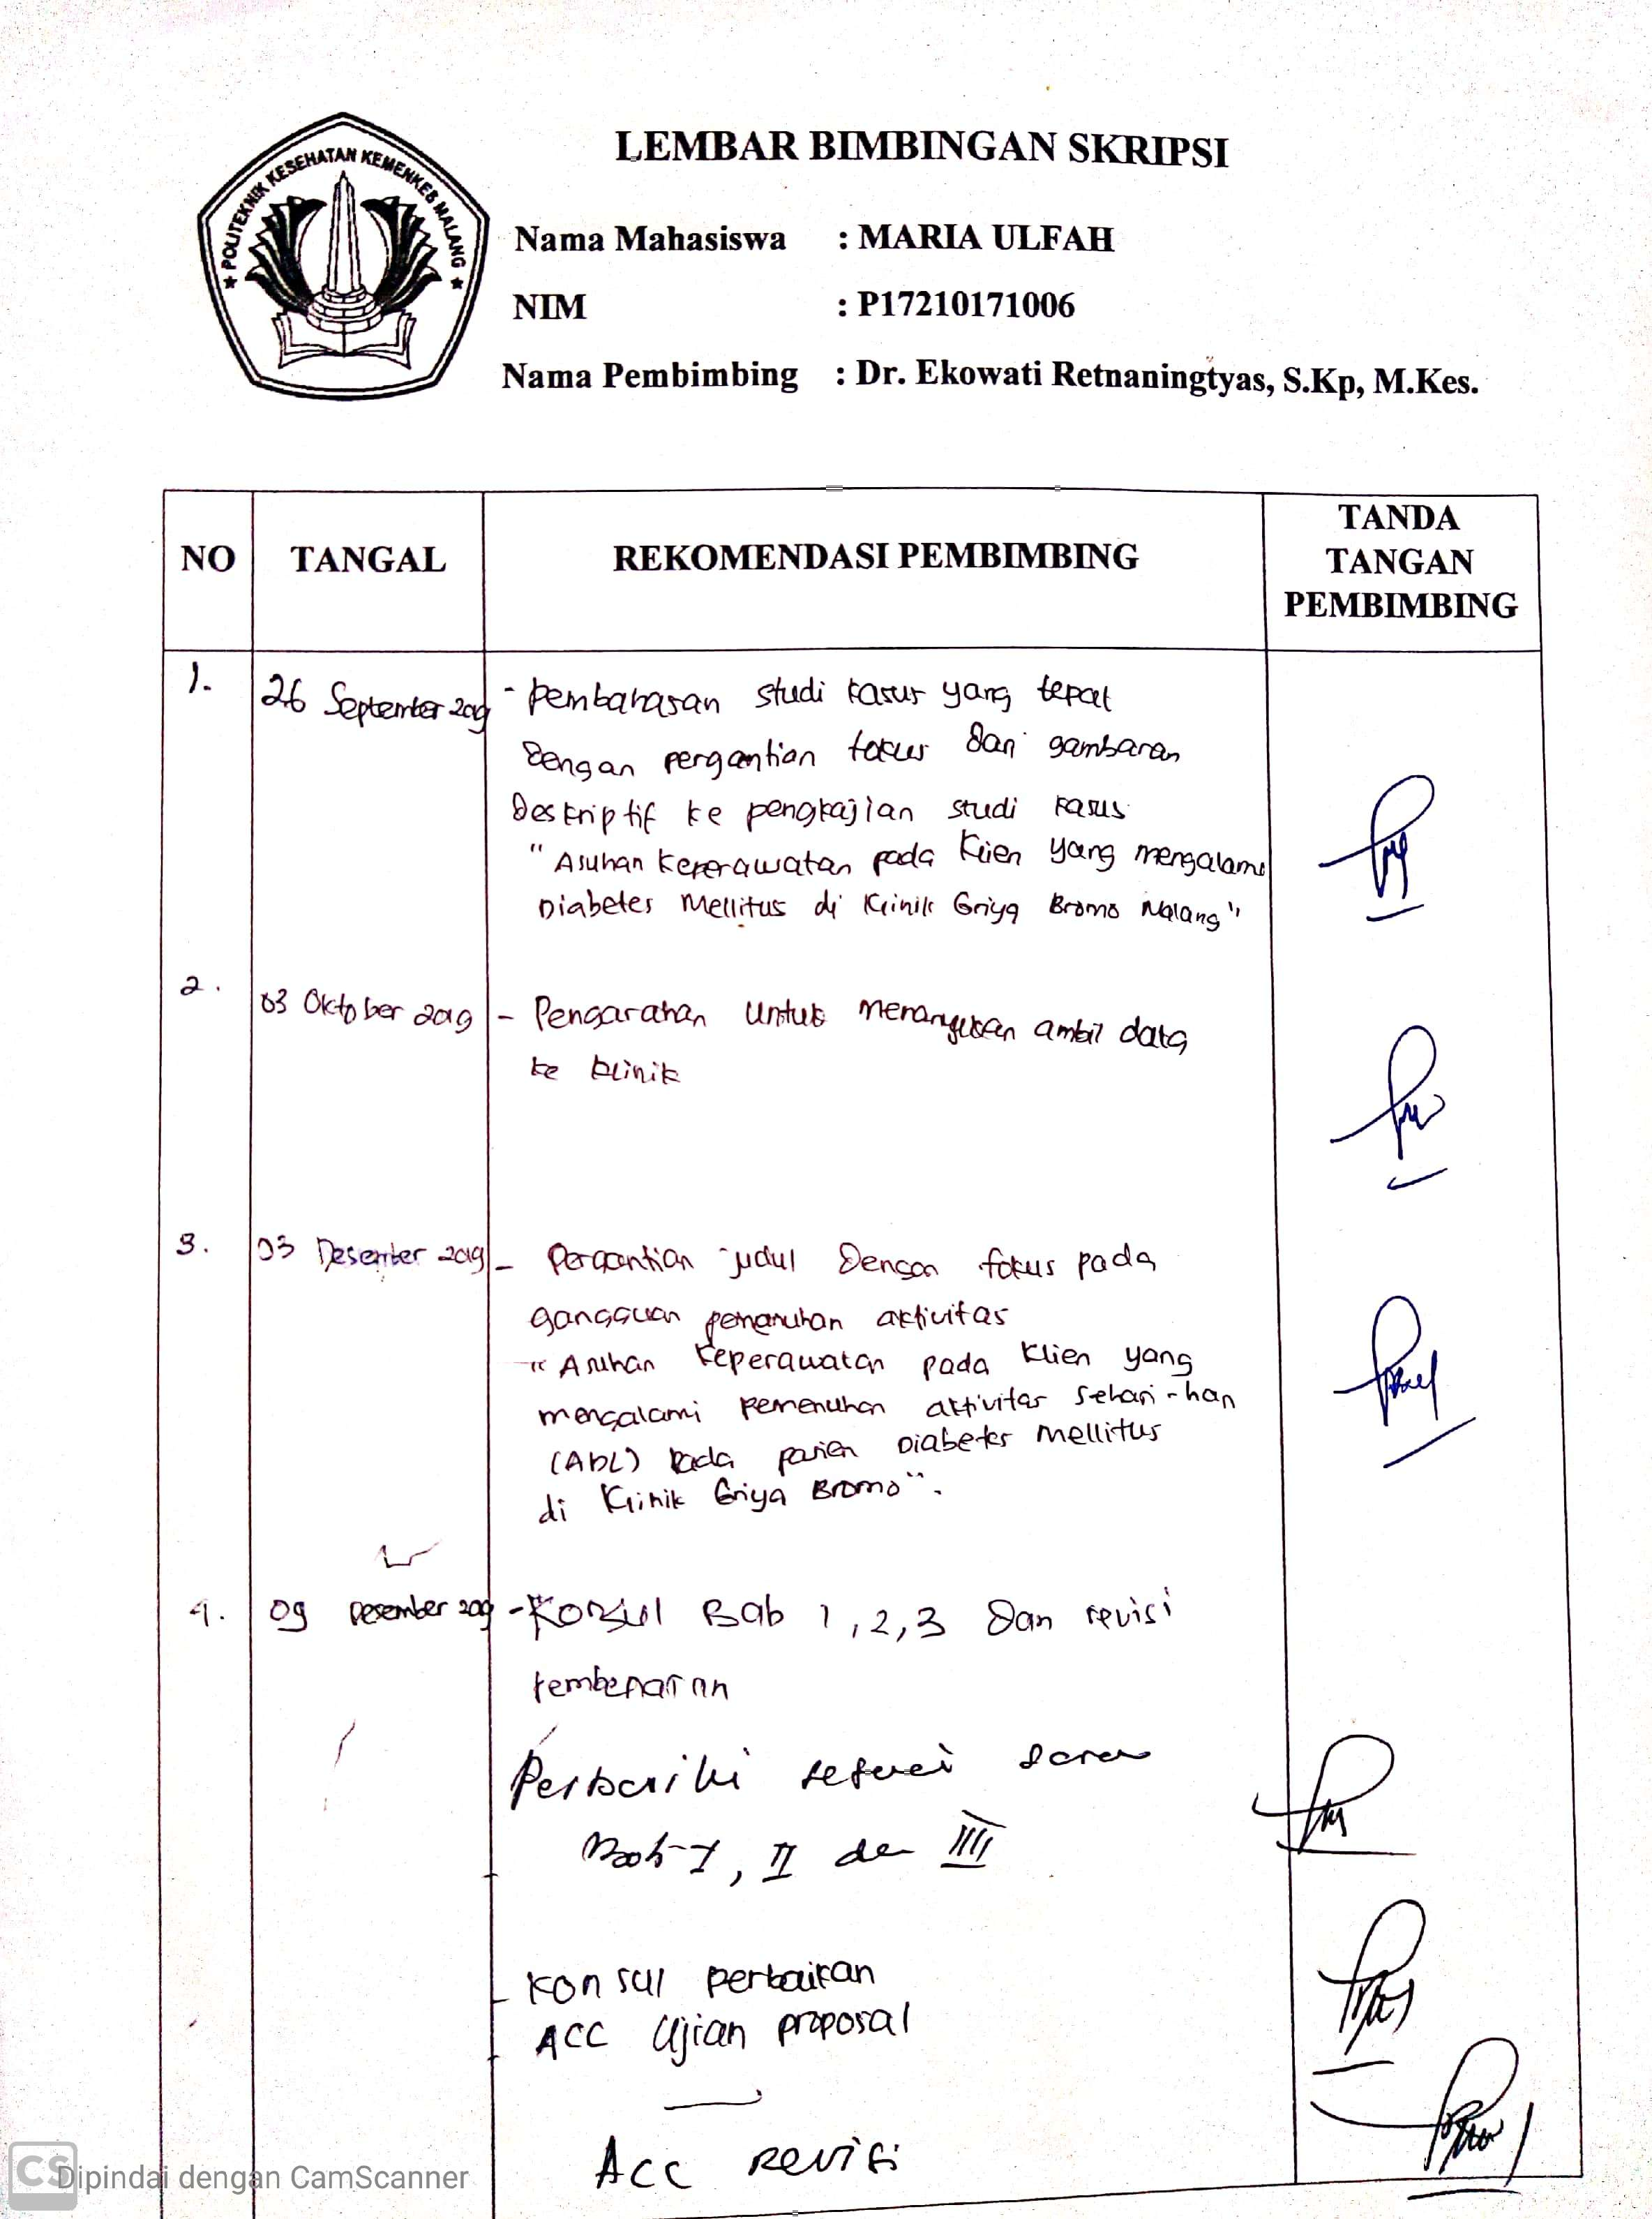 POLITEKNIK KESEHATAN KEMENKES MALANG
LEMBAR BIMBINGAN SKRIPSI
Nama Mahasiswa : MARIA ULFAH
NIM : P17210171006
Nama Pembimbing : Dr. Ekowati Retnaningtyas, S.Kp, M.Kes.
NO TANGAL REKOMENDASI PEMBIMBING TANDA TANGAN PEMBIMBING
1. 26 September 2019 - Pembahasan studi kasus yang tepat
Dengan pergantian fokus Dari gambaran
Deskriptif ke pengkajian studi kasus
"Asuhan keperawatan pada klien yang mengalami
Diabetes Mellitus di Klinik Griya Bromo Malang"
2. 03 Oktober 2019 - Pengarahan untuk ambil data
ke klinik
3. 03 Desember 2019 - Pergantian judul Dengan fokus pada
gangguan pemenuhan aktivitas
"Asuhan Keperawatan pada Klien yang
mengalami pemenuhan aktivitas sehari-hari
(ADL) pada pasien Diabetes mellitus
di Klinik Griya Bromo".
4. 09 Desember 2019 - Konsul Bab 1,2,3 Dan revisi
Perbaiki sesuai saran
Bab I, II dan III
- Konsul perbaikan
ACC Ujian proposal
ACC Revisi
CS Dipindai dengan CamScanner